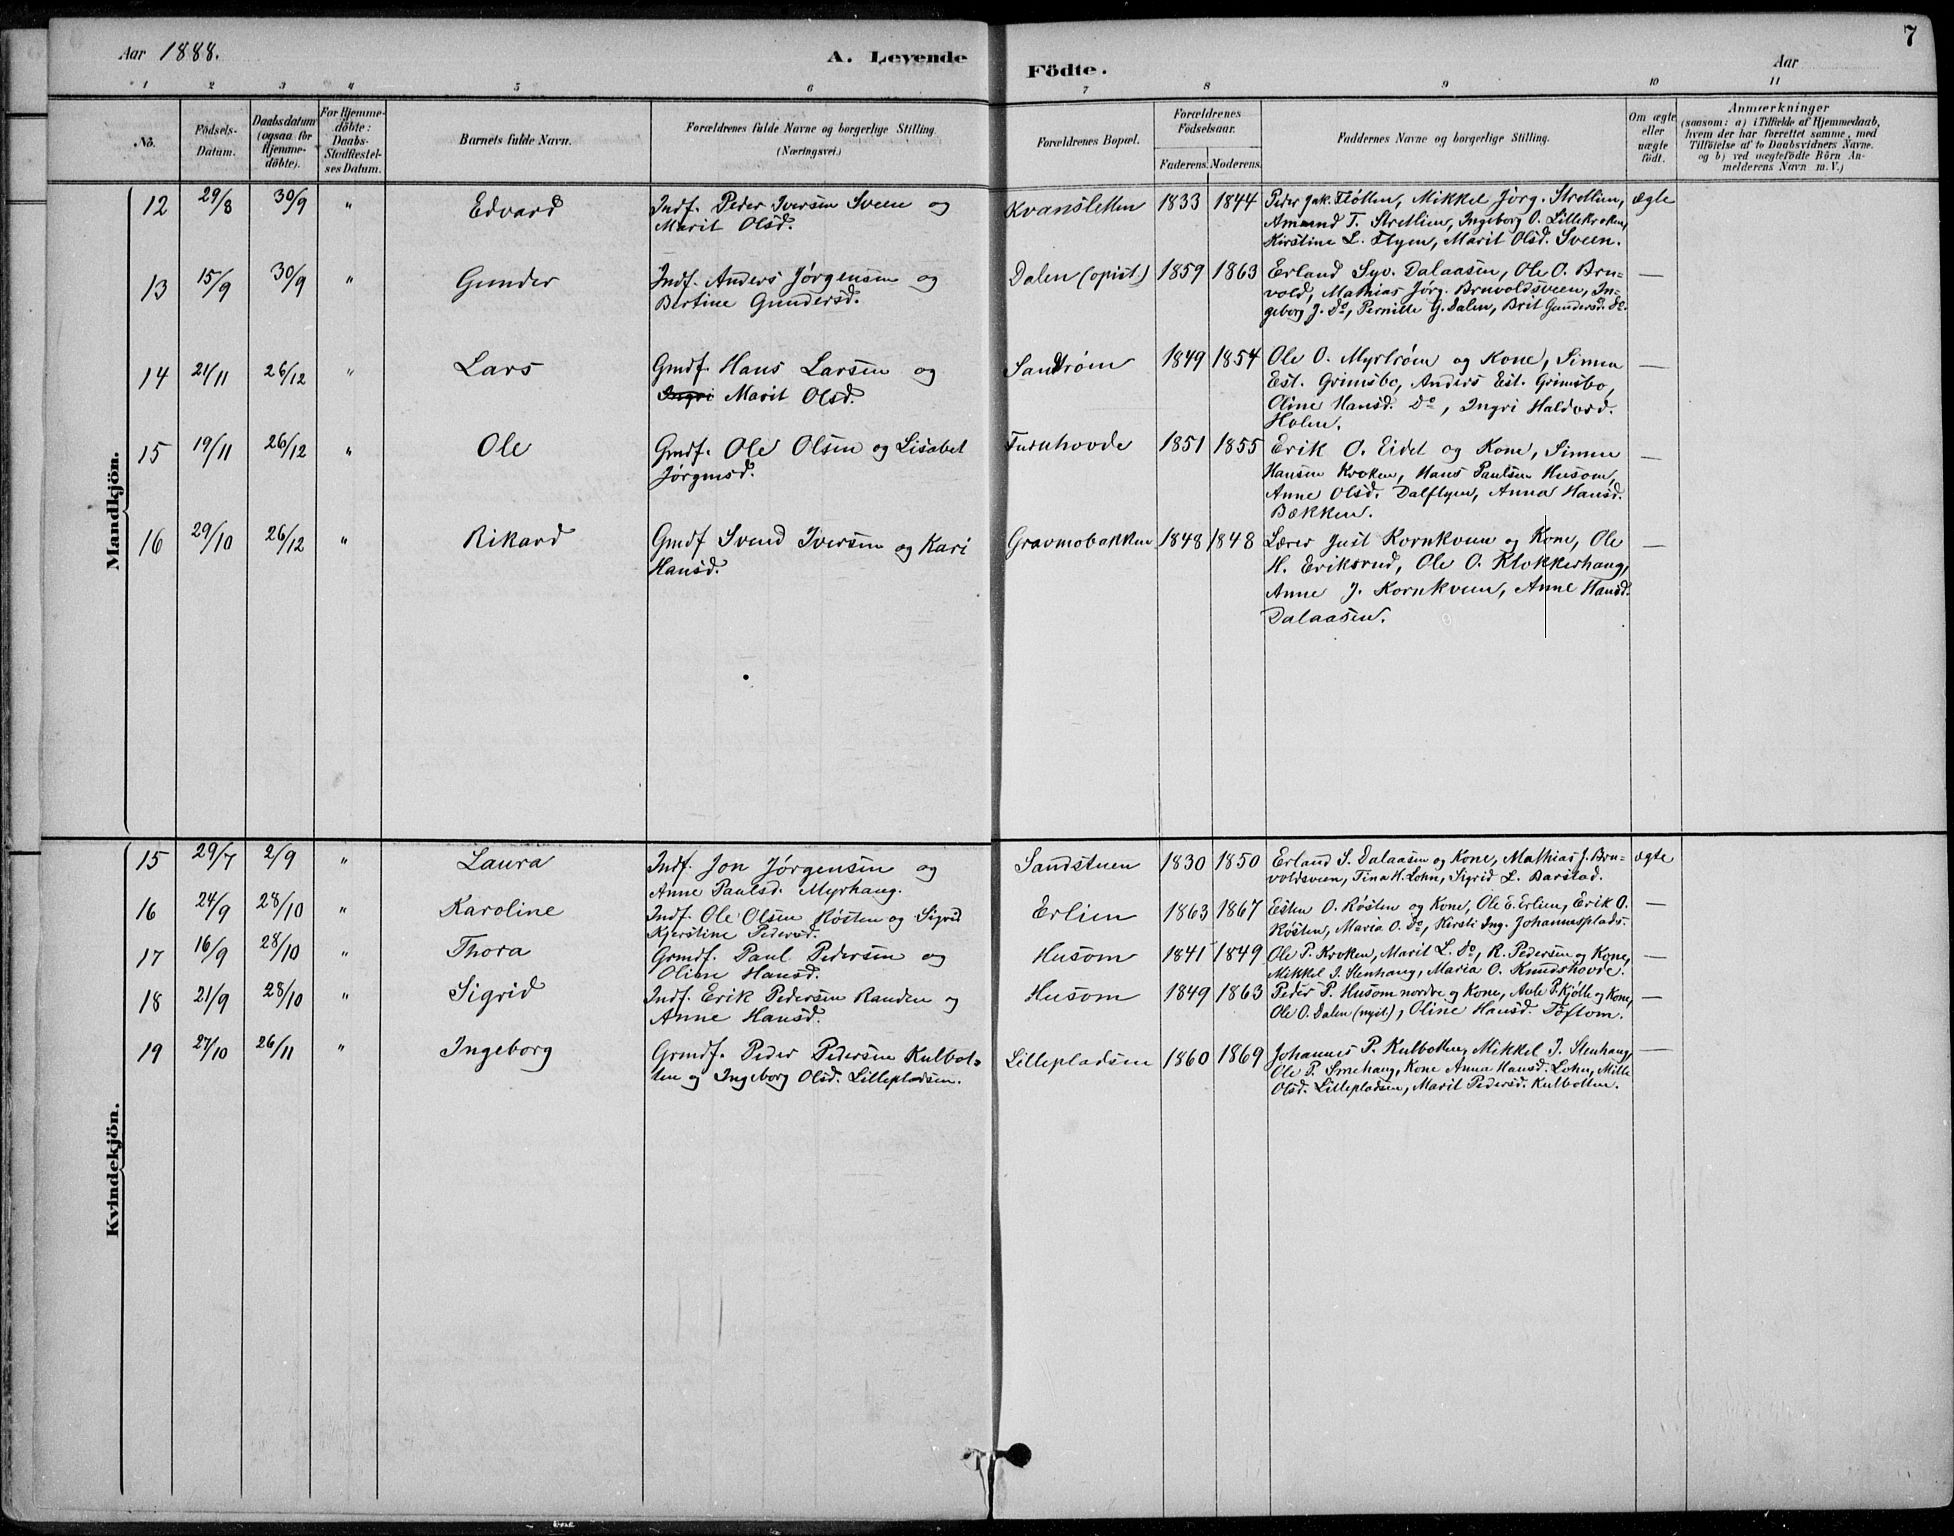 Aar 1888.
A. Levende Födte.
Aar
7
1 2 3 4 5 6 7 8 9 10 11
No.
Födsels-Datum.
Daabsdatum (ogsaa for Hjemmedöbte).
For Hjemmedöbte: Daabs-Stadfæstelses Datum.
Barnets fulde Navn.
Forældrenes fulde Navne og borgerlige Stilling.
(Næringsvei.)
Forældrenes Bopæl.
Forældrenes Födselsaar.
Faderens. Moderens.
Faddernes Navne og borgerlige Stilling.
Om ægte eller uægte födt.
Anmærkninger
(saasom: a) i Tilfælde af Hjemmedaab, hvem der har forrettet samme, med Tilföielse af to Daabsvidners Navne. og b) ved uægtefödte Börn Anmelderens Navn m. V.)
Mandkjön.
12 29/8 30/9 " Edvard Indf. Peder Iversen Sveen og Kvansletten 1833 1844 Peder Jak. Fløtten, Mikkel Jørg. Strotlien, ægte
Marit Olsd. Amund T. Stretlien, Ingeborg O. Lillekroken,
Kirstine L. Flyen, Marit Olsd. Sveen.
13 15/9 30/9 " Gunder Indf. Anders Jørgensen og Dalen (opist.) 1859 1863 Erland Syv. Dalaasen, Ole O. Bru- —
Bertine Gundersd. vold, Mathias Jørg. Bruvoldsveen, In-
geborg J. Do, Pernille G. Dalen, Brit Gundersd. Do.
14 21/11 26/12 " Lars Gmdf. Hans Larsen og Sandstrøm 1849 1854 Ole O. Myrstrøm og Kone, Simen —
Ingri Marit Olsd. Est. Grimsbo, Anders Est. Grimsbo,
Oline Hansd. Do, Ingri Haldord.
Holen.
15 19/11 26/12 " Ole Gmdf. Ole Olsen og Lisabet Furuhovde 1851 1855 Erik O. Eidet og Kone, Simen —
Jørgensd. Hansen Kroken, Hans Paulsen Husom,
Anne Olsd. Dalflyen, Anna Hansd.
Bækken.
16 29/10 26/12 " Rikard Gmdf Svend Iversen og Kari Gravmobakken 1848 1848 Lærer Just Kornkveen og Kone, Ole —
Hansd. H. Eriksrud, Ole O. Klokkerhaug,
Anne J. Kornkveen, Anne Hansd.
Dalaasen.
Kvindekjön.
15 29/7 2/9 " Laura Indf. Jon Jørgensen og Sandstuen 1830 1850 Erland S. Dalaasen og Kone, Mathias J. Bru- ægte
Anne Paulsd. Myrhaug. voldsveen, Tina H. Lohn, Sigrid L. Barstad.
16 24/9 28/10 " Karoline Indf. Ole Olsen Røsten og Sigrid Erlien 1863 1867 Esten O. Røsten og Kone, Ole E. Erlien, Erik O. —
Kjerstine Pedersd. Røsten, Maria O. Do, Kirsti Ing. Johannesplads.
17 16/9 28/10 " Thora Grmdf. Paul Pedersen og Husom 1841 1849 Ole P. Kroken, Marit L. Do, R. Pedersen og Kone, —
Oline Hansd. Mikkel J. Stenhaug, Maria O. Knudshovde.
18 21/9 28/10 " Sigrid Indf. Erik Pedersen Randen og Husom 1849 1863 Peder P. Husom nordre og Kone, Avle P. Kjølle og Kone, —
Anne Hansd. Ole O. Dalen (nyst.), Oline Hansd. Toftom.
19 27/10 26/11 " Ingeborg Grmdf. Peder Pedersen Kulbot- Lillepladsen 1860 1869 Johannes P. Kulbotten, Mikkel J. Stenhaug, —
ten og Ingeborg Olsd. Lillepladsen. Ole P. Smehaug, Kone Anna Hansd. Lohn, Mille
Olsd. Lillepladsen, Marit Pedersd. Kulbotten.